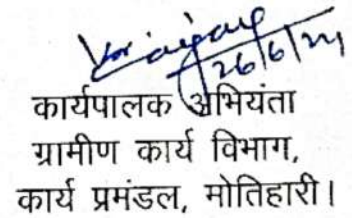 26/6/24
कार्यपालक अभियंता
ग्रामीण कार्य विभाग,
कार्य प्रमंडल, मोतिहारी।